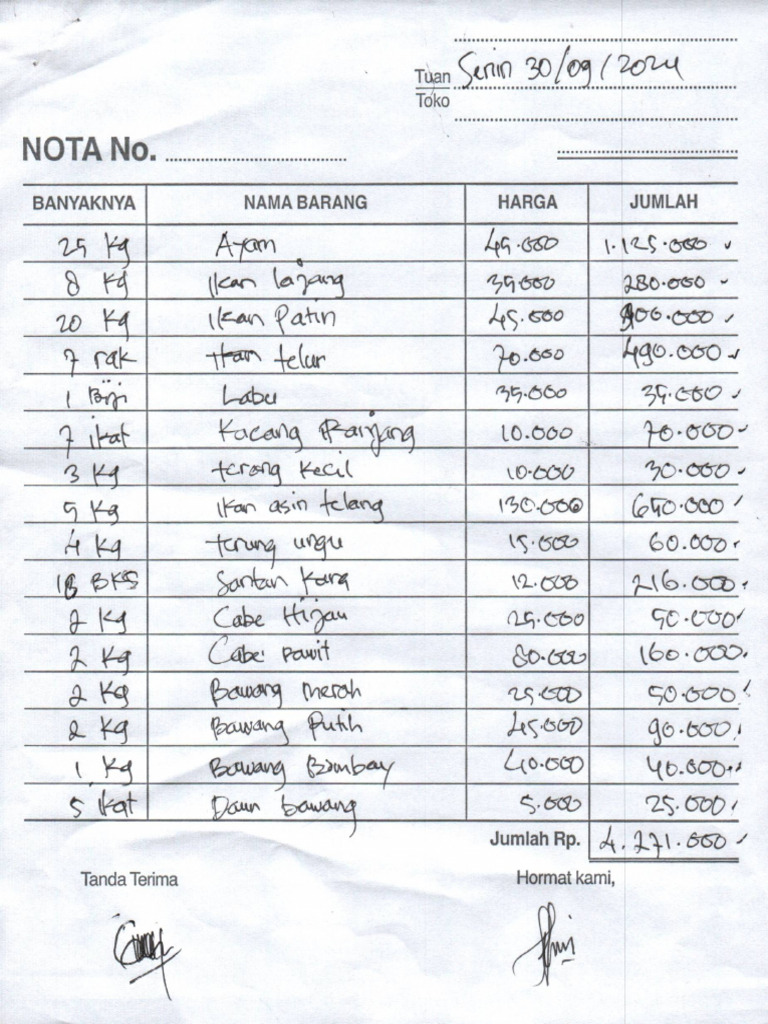 Tuan Senin 30/09/2024
Toko
NOTA No.
BANYAKNYA NAMA BARANG HARGA JUMLAH
25 Kg Ayam 45.000 1.125.000
8 Kg Ikan lajang 35.000 280.000
20 Kg Ikan Patin 45.000 900.000
7 rak telur 70.000 490.000
1 Biji Labu 35.000 35.000
7 ikat Kacang Panjang 10.000 70.000
3 Kg terong kecil 10.000 30.000
5 Kg Ikan asin telang 130.000 650.000
4 Kg terung ungu 15.000 60.000
18 BKS Santan Kara 12.000 216.000
2 Kg Cabe Hijau 25.000 50.000
2 Kg Cabe rawit 80.000 160.000
2 Kg Bawang merah 25.000 50.000
2 Kg Bawang Putih 45.000 90.000
1 Kg Bawang Bombay 40.000 40.000
5 ikat Daun bawang 5.000 25.000
Jumlah Rp. 4.271.000
Tanda Terima Hormat kami,